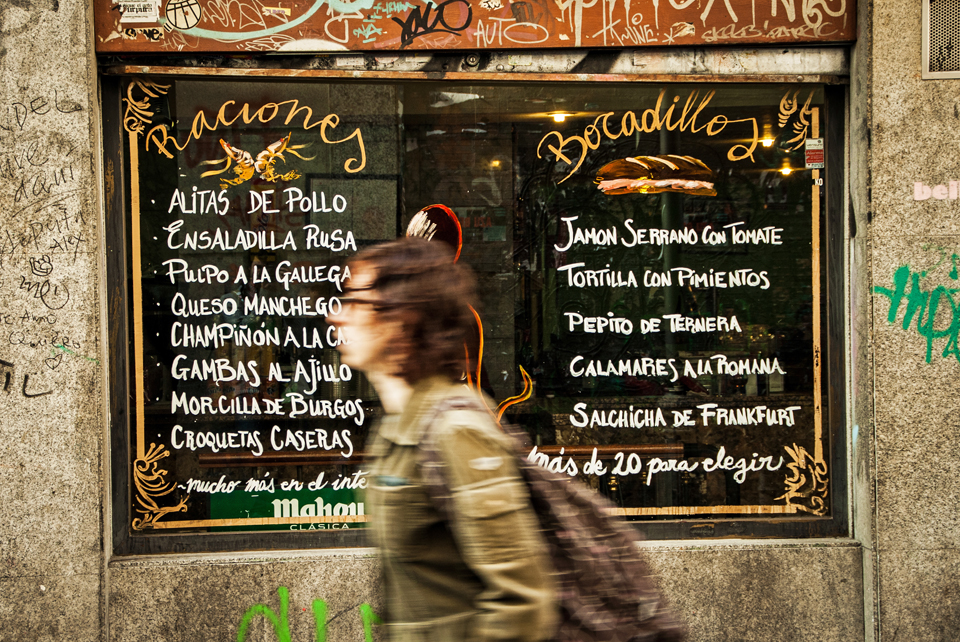 Raciones
ALITAS DE POLLO
ENSALADILLA RUSA
PULPO A LA GALLEGA
QUESO MANCHEGO
CHAMPIÑÓN A LA
GAMBAS AL AJILLO
MORCILLA DE BURGOS
CROQUETAS CASERAS
mucho más en el
Mahou
CLÁSICA
Bocadillos
JAMON SERRANO CON TOMATE
TORTILLA CON PIMIENTOS
PEPITO DE TERNERA
CALAMARES A LA ROMANA
SALCHICHA DE FRANKFURT
más de 20 para elegir